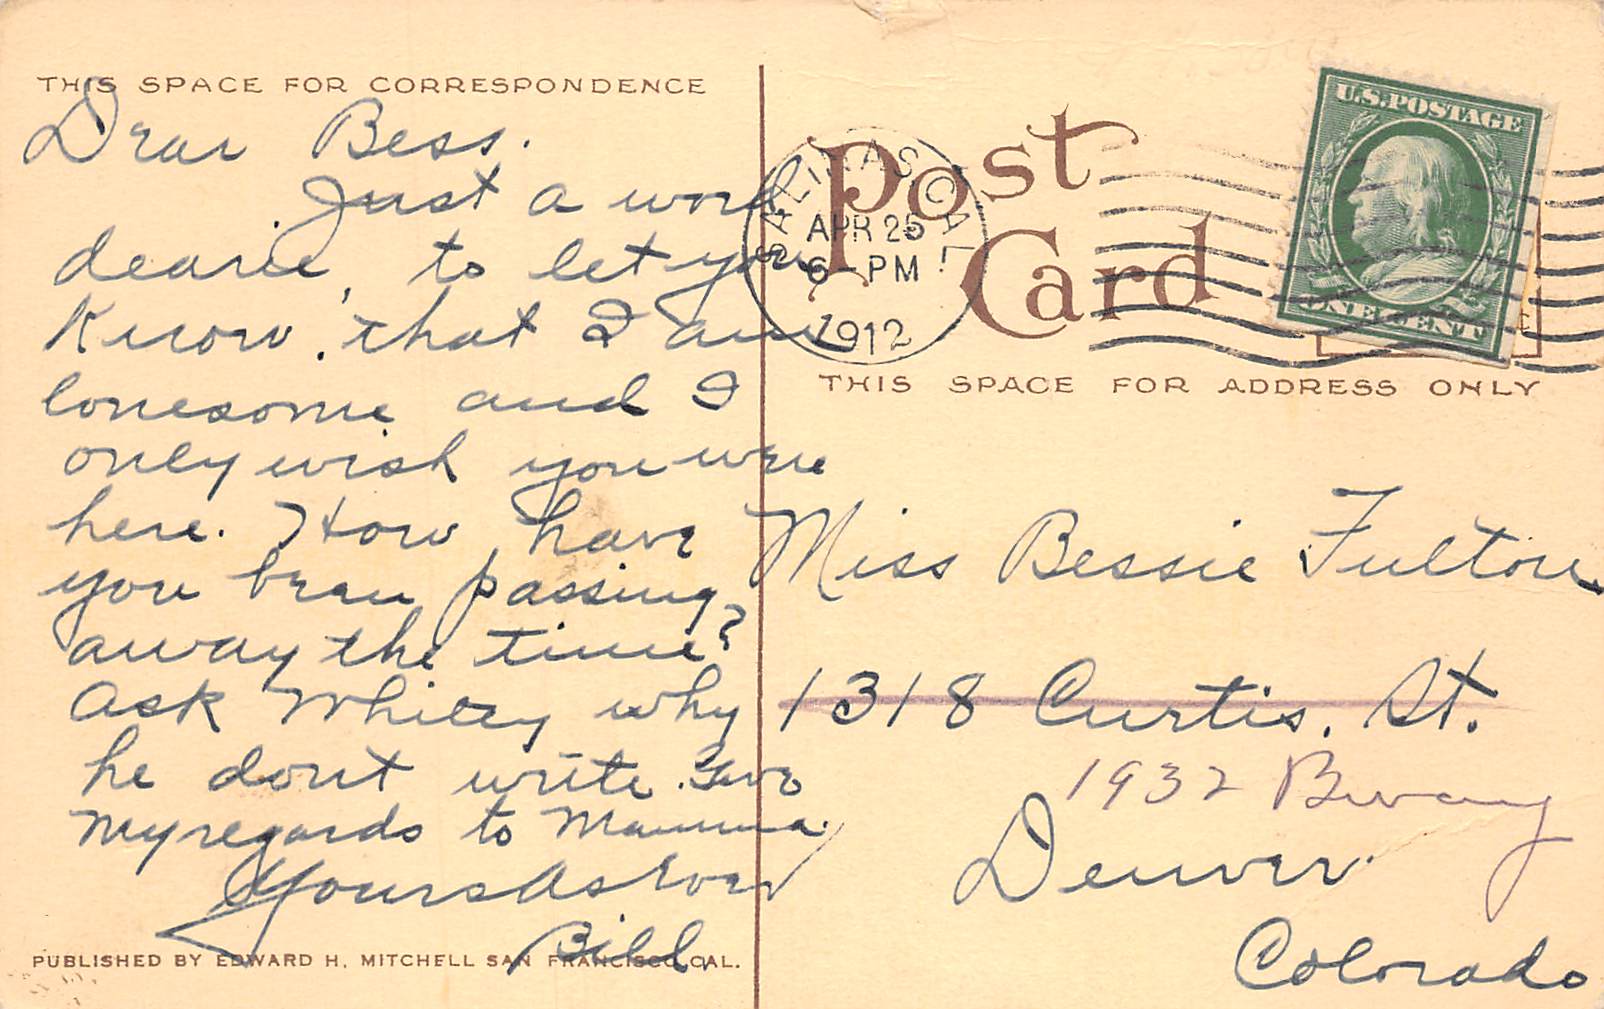 THIS SPACE FOR CORRESPONDENCE
Dear Bess.
Just a word
dearie, to let you
Know, that I am
lonesome and I
only wish you were
here. How have
you bean passing
away the time?
Ask Whitey why
he dont write. Give
My regards to Mamma.
Yours As Ever
Bill.
PUBLISHED BY EDWARD H. MITCHELL SAN FRANCISCO, CAL.
Post
Card
SALINAS, CAL.
APR 25
6 - PM
1912
U.S. POSTAGE
ONE CENT
THIS SPACE FOR ADDRESS ONLY
Miss Bessie Fulton
1318 Curtis. St.
1932 Bway
Denver
Colorado